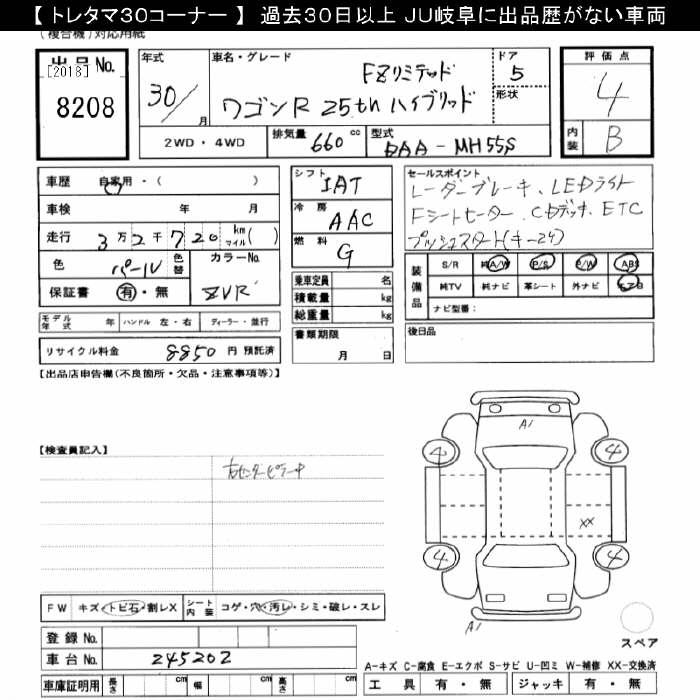 【 トレタマ30コーナー 】 過去30日以上 JU岐阜に出品歴がない車両
(複合機) 対応用紙
出品 No.
[2018]
8208
年式
30/
月
車名・グレード
FZリミテッド
ワゴンR 25th ハイブリッド
ドア
5
形状
評価点
4
内装
B
2WD・4WD
排気量 660 cc
型式 DAA-MH55S
車歴
自家用・( )
車検 年 月
走行 3万2千720 km マイル( )
色 パール
色替
カラーNo.
ZVR
保証書 有・無
シフト
IAT
冷房
AAC
燃料
G
乗車定員 名
積載量 kg
総重量 kg
セールスポイント
レーダーブレーキ、LEDライト
Fシートヒーター、CDデッキ、ETC
プッシュスタート(キー2ケ)
装備品
S/R 純A/W P/S P/W ABS
純TV 純ナビ 革シート 外ナビ エアB
ナビ型番:
モデル年式 年 ハンドル 左・右 ディーラー・並行
リサイクル料金 8850 円 預託済
書類期限
月 日
後日品
【出品店申告欄(不良箇所・欠品・注意事項等)】
【検査員記入】
右センターピラー中
A1
4
4
XX
4
4
A1
スペア
FW キズ・トビ石・割レX
シート内装 コゲ・穴・汚レ・シミ・破レ・スレ
登録 No.
車台 No. 245202
車庫証明用 長さ cm 幅 cm 高さ cm
A-キズ C-腐食 E-エクボ S-サビ U-凹ミ W-補修 XX-交換済
工具 有・無 ジャッキ 有・無